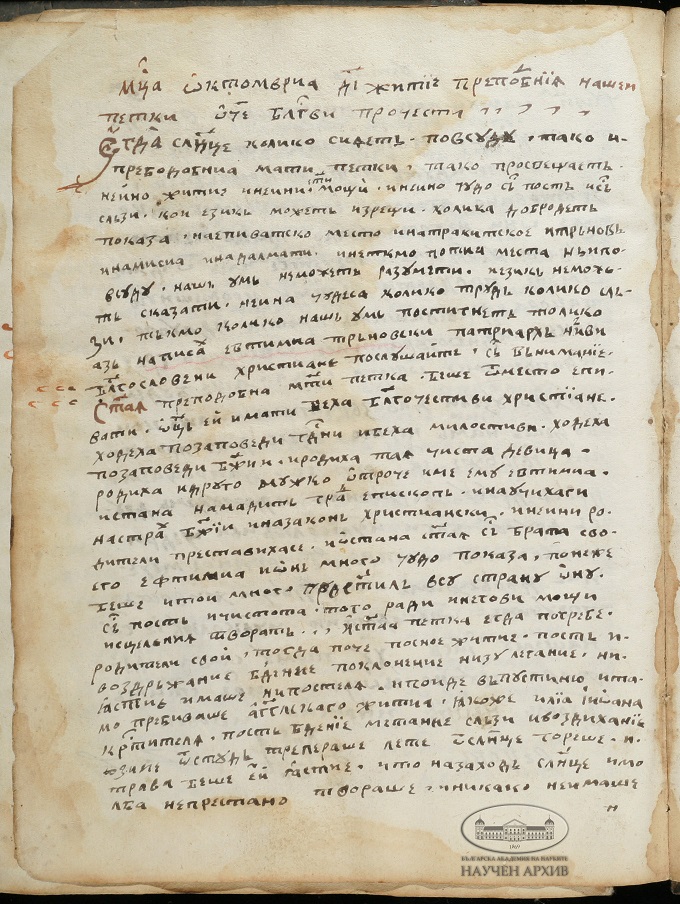 мцⷭ҇а ѡктомвриа дı҃ житїе преподобнїѧ нашеи
петки ѿче бл҃гви прочести
Егда сл҃нце колико сиѧетъ · повсуду , тако и
преподобниа мати петки , тако просвещаетъ ·
неино житие и неини ст҃и мощи · и неино чудо съ постъ и съ
сльзи · кои езикь можеть изрещи · колика добродеть
показа · на епиватско место и на тракитское и трьновь
и на мисиа и на далмати · и нетькмо по тиа места нь и по
всуду · нашь умь неможеть разумети · и езикь неможе
ть сказати · неина чудеса колико трудь колико сль
зи · тькмо колико нашь умь постигнеть толико
азь написа евтимиа трьновски патриархь
бл҃гословени христиане послушаите · съ вьнимание ·
Ст҃аа преподобна мт҃и петка · беше ѿ место епи
вати · ѿць еи и мати беха бл҃гочестиви христїане ·
ходеха по заповеди гдⷭ҇ни и беха милостиви · ходеха
по заповеди бж҃ии · и родиха таа чиста девица ·
родиха и друго мужко ѿроче име ему евтимиа ·
и стана на мадить град епископь · и научихаги
на страⷯ бж҃їи и на законь христиански · и неини ро
дители преставихасе · и ѡстана ст҃аа съ брата сво
его ефтимиа и ѡнь много чудо показа , понеже
беше и тои много просветиль всу страну ѡну ·
съ пость и чистота · того ради и негови мощи
исцеления творать · и ст҃аа петка егда погребе ·
родители свои , тогда поче посное житие · пость и ·
воздрьжание бдение поклонение низулегание · ни
ꙗстие имаше ни постела · и поиде вь пустиню и та
мо пребиваше агг҃лскаго житиа · ꙗкоже илїа и їѡана
крⷭ҇тителя , пость бденїе метание сльзи и воздиханїе
ѿ студь треперaше лете ѿ слⷩ҇це гореше · и
трава беше еи ꙗстие · что на заходь слⷩ҇це имо
лба непрестано твораше , и никако неимаше
н
БЪЛГАРСКА АКАДЕМИЯ НА НАУКИТЕ
НАУЧЕН АРХИВ